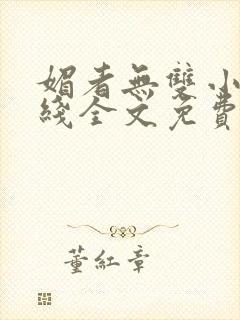 媚者無雙小
綫全文免費
董紅章